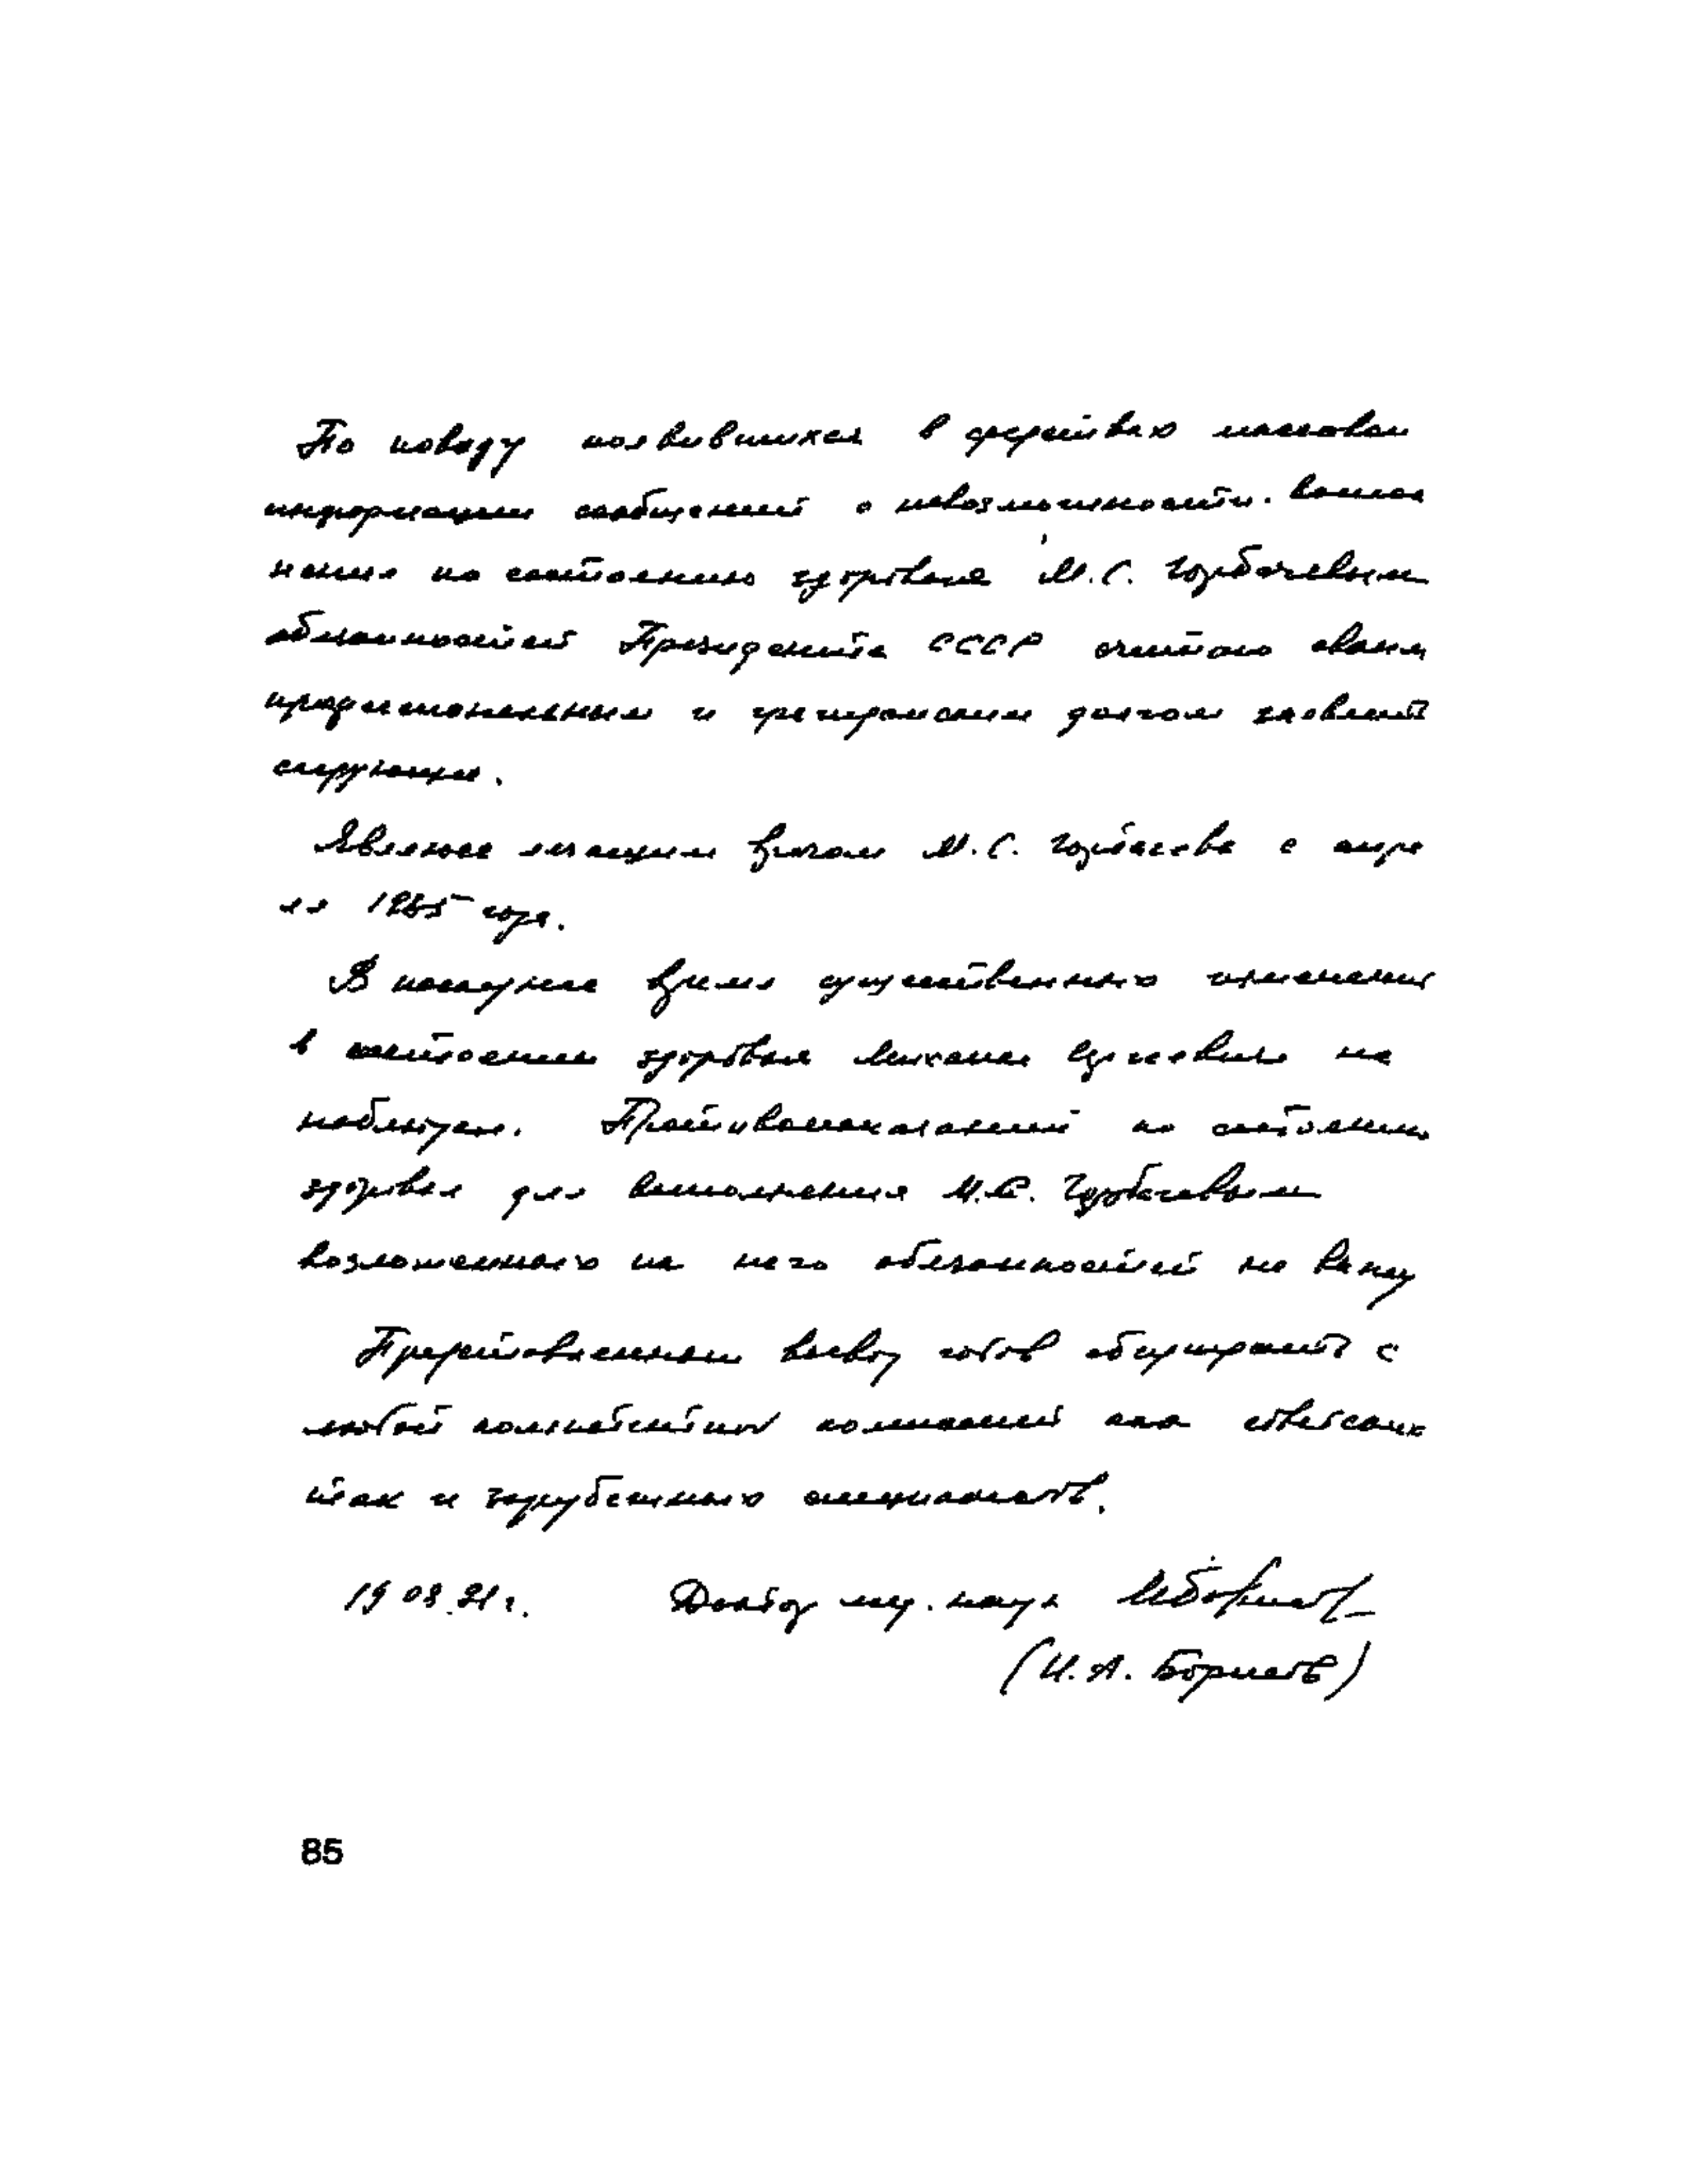 По поводу появившихся в средствах массовой
информации сообщений о невозможности выпол
нения по состоянию здоровья М.С. Горбачевым
обязанностей Президента СССР считаю своим
профессиональным и гражданским долгом заявить
следующее.
Являюсь лечащим врачом М.С. Горбачева с апре
ля 1985 года.
В последнее время существенных изменений
в состоянии здоровья Михаила Сергеевича не
наблюдаю. Противопоказаний по состоянию
здоровья для выполнения М.С. Горбачевым
возложенных на него обязанностей не вижу
Представленный вывод готов обсуждать с
любой компетентной комиссией как советских
так и зарубежных специалистов.
19 08.91 г. Доктор мед. наук
(И.А. Борисов)
85